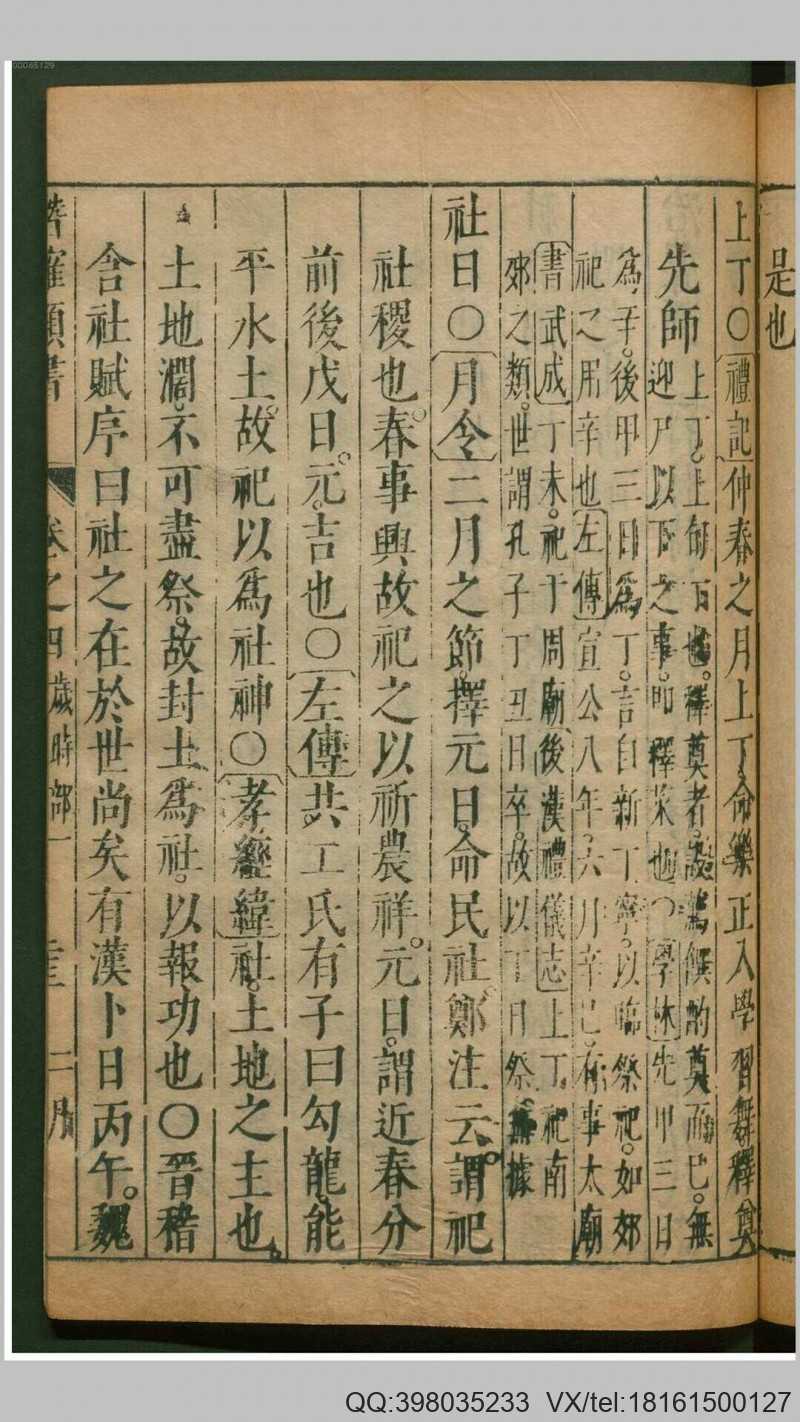 是也
上丁○禮記仲春之月上丁命樂正入學習舞釋奠
先師
上丁上旬丁也。釋奠者設薦饌酌奠而已。無
迎尸以下之事。即釋菜也○學林先甲三日
爲辛。後甲三日爲丁。言自新丁寧。以臨祭祀。如郊
祀之用辛也左傳宣公八年。六月辛巳。有事太廟
書武成丁未。祀于周廟後漢禮儀志上丁。祀南
郊之類。世謂孔子丁丑日卒。故以丁日祭無據
社日○月令二月之節擇元日。命民社。鄭注云。謂祀
社稷也。春事興故祀之以祈農祥。元日。謂近春分
前後戊日。元。吉也○左傳共工氏有子曰勾龍。能
平水土。故祀以爲社神○孝經緯社。土地之主也。
土地濶。不可盡祭。故封土爲社。以報功也○晉嵇
含社賦序曰社之在於世尚矣有漢卜日丙午。魏
確類書 卷之四歲時部一 二月
00065129
QQ:398035233 VX/tel:18161500127